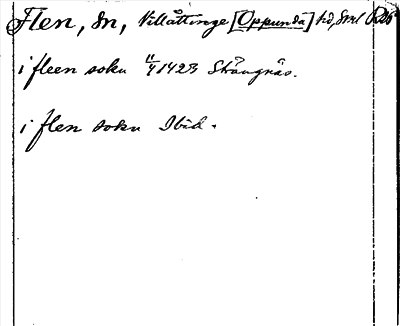 Flen, sn, Villåttinge [Oppunda] hd, Srml
i fleen soku 11/4 1423 Strängnäs.
i flen soku Ibid.